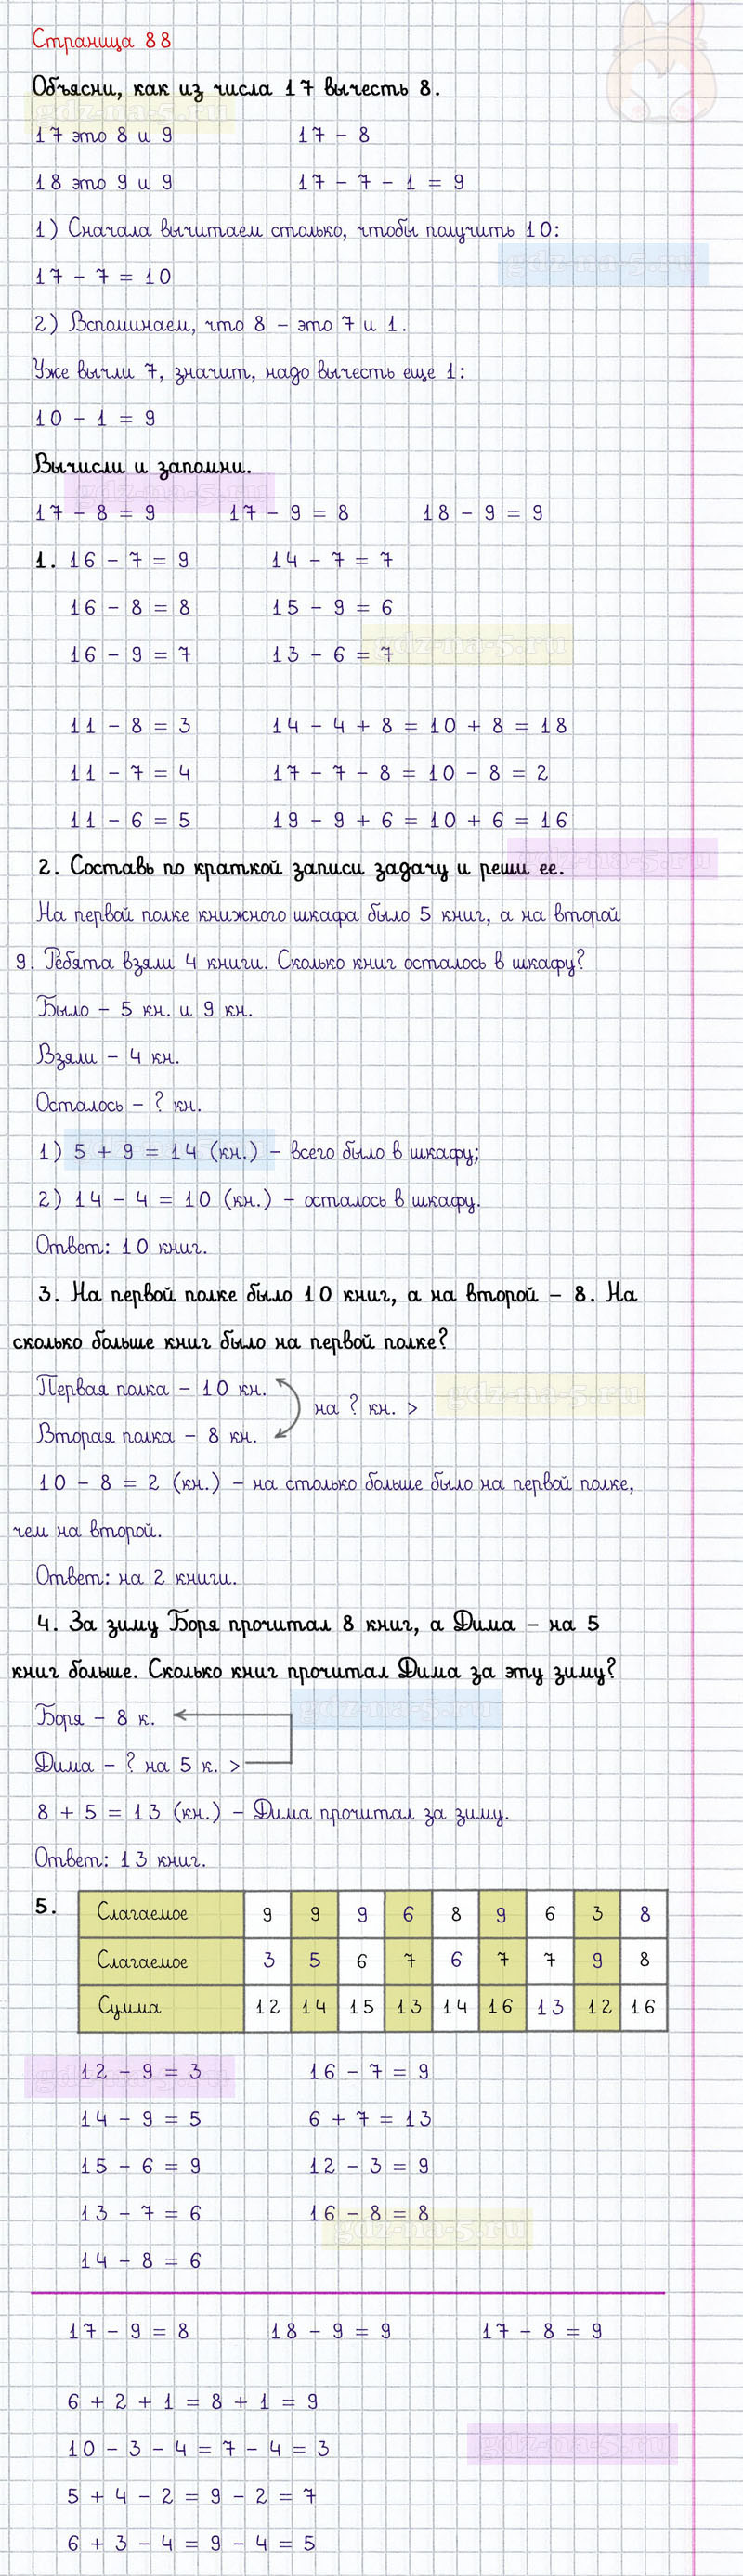 Страница 88
Объясни, как из числа 17 вычесть 8.
gdz-na-5.ru
17 это 8 и 9 17 - 8
18 это 9 и 9 17 - 7 - 1 = 9
1) Сначала вычитаем столько, чтобы получить 10:
gdz-na-5.ru
17 - 7 = 10
2) Вспоминаем, что 8 - это 7 и 1.
Уже вычли 7, значит, надо вычесть еще 1:
10 - 1 = 9
Вычисли и запомни.
gdz-na-5.ru
17 - 8 = 9 17 - 9 = 8 18 - 9 = 9
1. 16 - 7 = 9 14 - 7 = 7
16 - 8 = 8 15 - 9 = 6
gdz-na-5.ru
16 - 9 = 7 13 - 6 = 7
11 - 8 = 3 14 - 4 + 8 = 10 + 8 = 18
11 - 7 = 4 17 - 7 - 8 = 10 - 8 = 2
11 - 6 = 5 19 - 9 + 6 = 10 + 6 = 16
gdz-na-5.ru
2. Составь по краткой записи задачу и реши ее.
На первой полке книжного шкафа было 5 книг, а на второй
9. Ребята взяли 4 книги. Сколько книг осталось в шкафу?
Было - 5 кн. и 9 кн.
Взяли - 4 кн.
Осталось - ? кн.
1) 5 + 9 = 14 (кн.) - всего было в шкафу;
2) 14 - 4 = 10 (кн.) - осталось в шкафу.
Ответ: 10 книг.
3. На первой полке было 10 книг, а на второй - 8. На
сколько больше книг было на первой полке?
Первая полка - 10 кн.
на ? кн. >
gdz-na-5.ru
Вторая полка - 8 кн.
10 - 8 = 2 (кн.) - на столько больше было на первой полке,
чем на второй.
Ответ: на 2 книги.
4. За зиму Боря прочитал 8 книг, а Дима - на 5
книг больше. Сколько книг прочитал Дима за эту зиму?
gdz-na-5.ru
Боря - 8 к.
Дима - ? на 5 к. >
8 + 5 = 13 (кн.) - Дима прочитал за зиму.
Ответ: 13 книг.
5. Слагаемое 9 9 9 6 8 9 6 3 8
Слагаемое 3 5 6 7 6 7 7 9 8
Сумма 12 14 15 13 14 16 13 12 16
gdz-na-5.ru
12 - 9 = 3 16 - 7 = 9
14 - 9 = 5 6 + 7 = 13
15 - 6 = 9 12 - 3 = 9
13 - 7 = 6 16 - 8 = 8
gdz-na-5.ru
14 - 8 = 6
17 - 9 = 8 18 - 9 = 9 17 - 8 = 9
6 + 2 + 1 = 8 + 1 = 9
10 - 3 - 4 = 7 - 4 = 3
gdz-na-5.ru
5 + 4 - 2 = 9 - 2 = 7
6 + 3 - 4 = 9 - 4 = 5